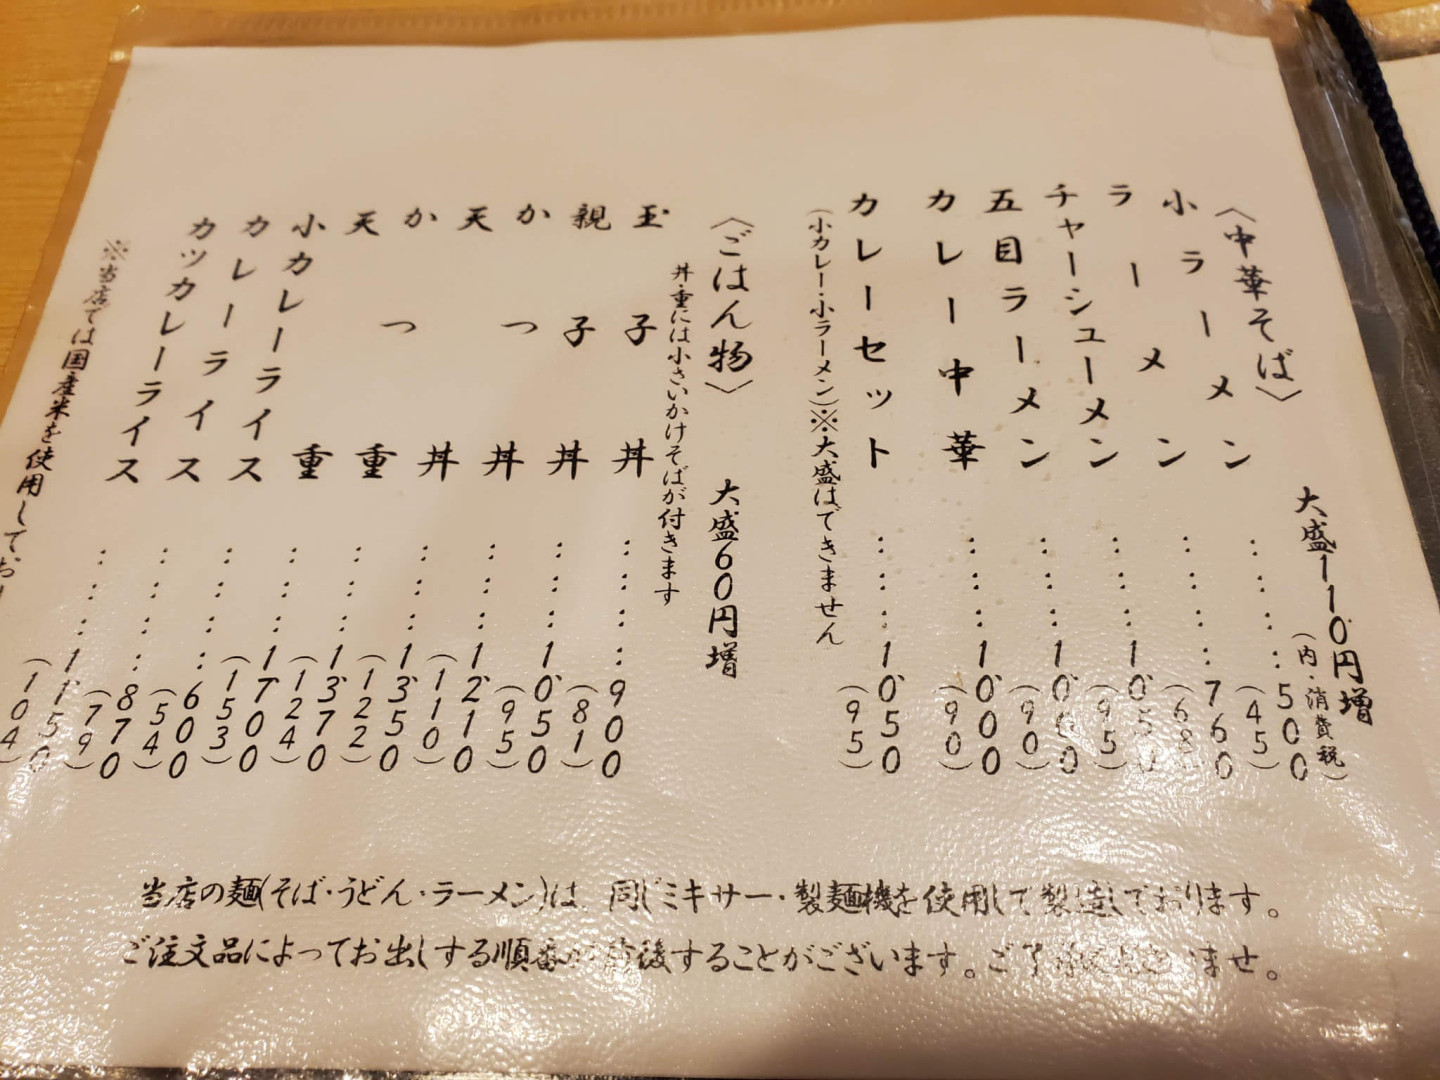 〈中華そば〉 大盛110円増
(内・消費税)
小ラーメン……500
(45)
ラーメン……760
(68)
チャーシューメン……1,050
(95)
五目ラーメン……
(90)
カレー中華……1,000
(90)
カレーセット……1,050
(95)
(小カレー・小ラーメン)※大盛はできません
〈ごはん物〉 大盛60円増
丼・重には小さいかけそばが付きます
玉子丼……900
(81)
親子丼……1,050
(95)
かつ丼……1,210
(110)
天丼……1,350
(122)
かつ重……1,370
(124)
天重……1,700
(153)
小カレーライス……600
(54)
カレーライス……870
(79)
カツカレーライス……1,150
(104)
※当店では国産米を使用してお
当店の麺(そば・うどん・ラーメン)は、同じミキサー・製麺機を使用して製造しております。
ご注文品によってお出しする順番が前後することがございます。ご了承くださいませ。